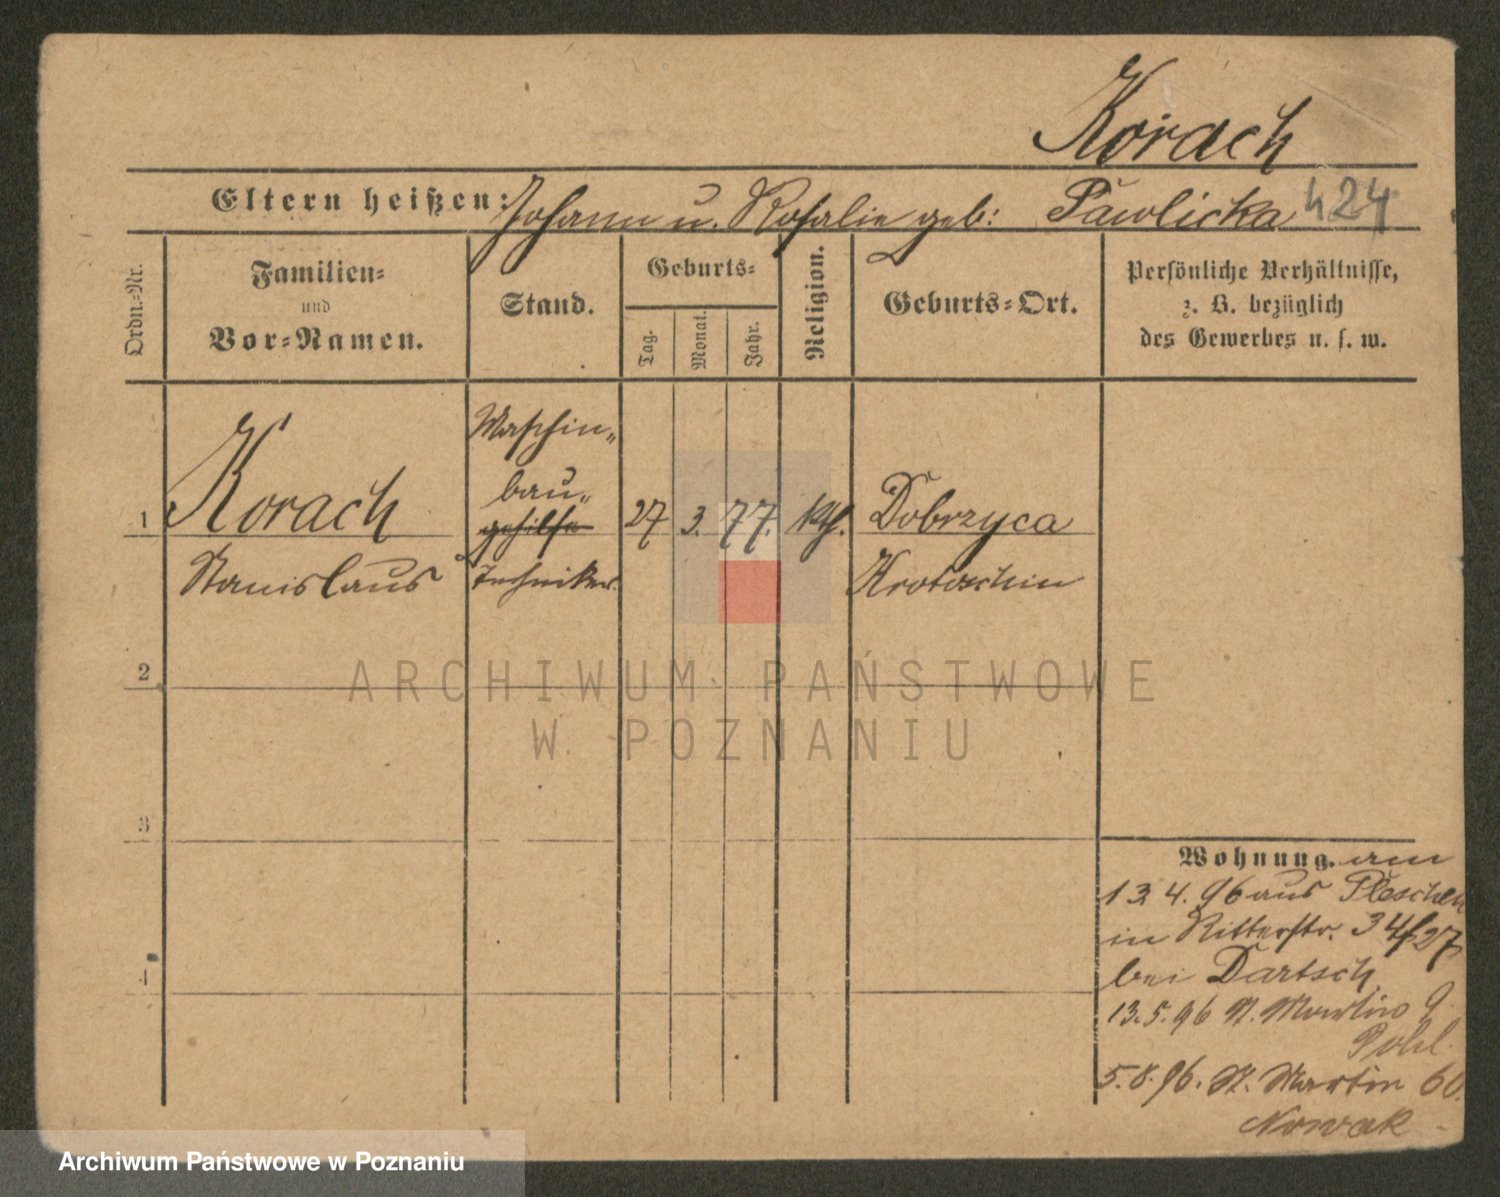 Korach
Eltern heißen: Johann u. Rosalie geb: Pawlicka 424
Ordn.=Nr.
Familien=
und
Vor=Namen.
Stand.
Geburts=
Tag.
Monat.
Jahr.
Religion.
Geburts=Ort.
Persönliche Verhältnisse,
z. B. bezüglich
des Gewerbes u. s. w.
1
Korach
Stanislaus
Maschin„
bau„
gehilfe
Techniker.
27
3.
77.
kth.
Dobrzyca
Krotoschin
2
3
4
Wohnung. am
13 4. 96 aus Pleschen
in Ritterstr. 34/27
bei Dartsch
13.5.96 St. Martin 9
Pohl
5.8.96. St. Martin 60.
Nowak
ARCHIWUM PAŃSTWOWE
W POZNANIU
Archiwum Państwowe w Poznaniu